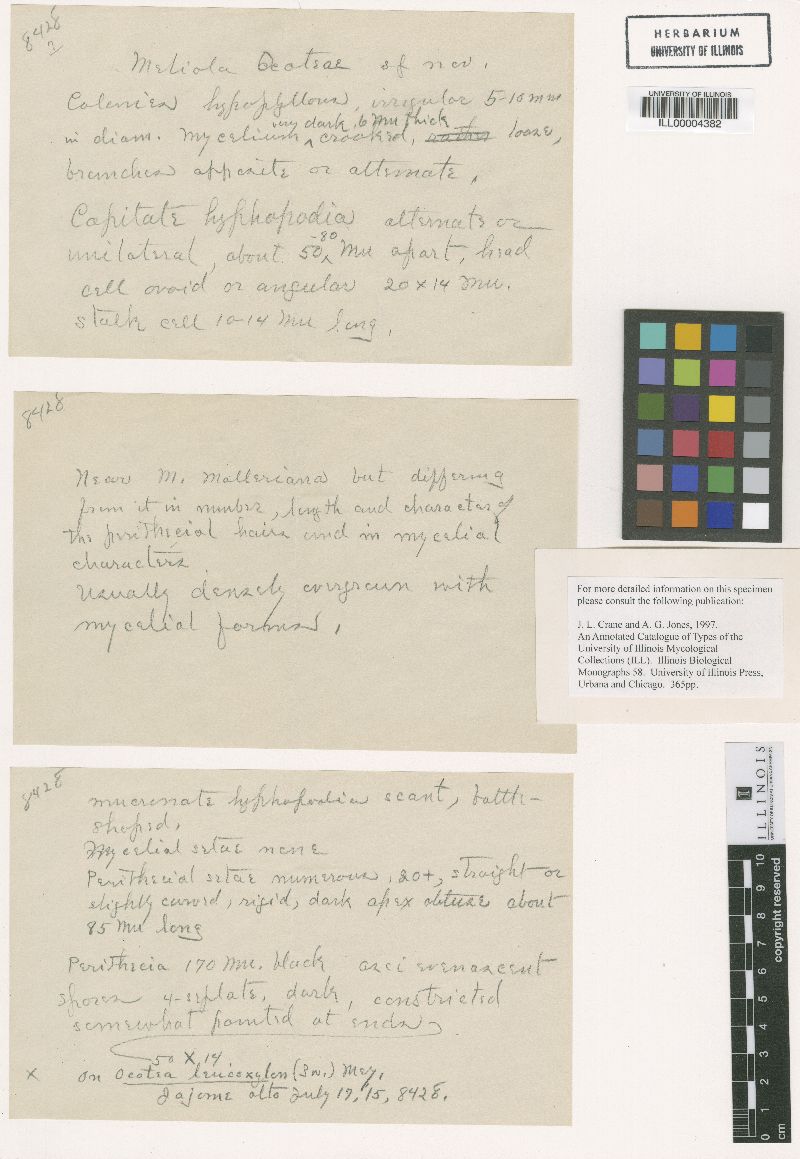 8428
2
Meliola Ocoteae sp nov.
Colonies hypophyllous, irregular 5-10 mm
very dark, 6 Mu thick
in diam. Mycelium ^ crooked, rather loose,
branches opposite or alternate.
Capitate hyphopodia alternate or
-80
unilateral, about 50 ^ Mu apart, head
cell ovoid or angular 20 x 14 Mu.
stalk cell 10-14 Mu long.
8428
Near M. molleriana but differing
from it in number, length and character of
the perithecial hairs and in mycelial
characters
Usually densely overgrown with
mycelial forms.
8428
mucronate hyphopodia scant, bottle-
shaped.
Mycelial setae none
Perithecial setae numerous, 20+, straight or
slightly curved, rigid, dark apex obtuse about
85 Mu long
Perithecia 170 Mu. black, asci evenascent
spores 4-septate, dark, constricted
somewhat pointed at ends
50 x 14
x on Ocotea leucoxylon (Sw.) Mez.
Jajome alto July 17, 15, 8428.
HERBARIUM
UNIVERSITY OF ILLINOIS
UNIVERSITY OF ILLINOIS
ILL00004382
For more detailed information on this specimen
please consult the following publication:
J. L. Crane and A. G. Jones, 1997.
An Annotated Catalogue of Types of the
University of Illinois Mycological
Collections (ILL). Illinois Biological
Monographs 58. University of Illinois Press,
Urbana and Chicago. 365pp.
I
ILLINOIS
10
9
8
7
6
5
4
3
2
1
0
cm
copyright reserved